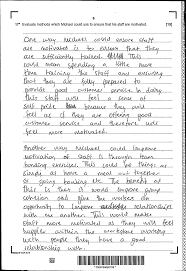 6
7 Evaluate methods which Michael could use to ensure that his staff are motivated.
[10]
One way Michael could ensure staff
are motivated is to ensure that they
are sufficiently trained. This
could mean spending a little more
time training the staff and ensuring
that they are fully prepared to
provide good customer service. In doing
this staff will feel a sense of
because they will
feel as if they are offering good
customer service and therefore will
feel more motivated.
Another way Michael could improve
motivation of staff is through team
bonding exercises. This could be things as
simple as have a meal out together
or going bowling etc. The benefit of
this is that it would improve group
cohesion and give the workers an
opportunity to improve relationships
with one another. This would make
staff more motivated as they will feel
happier within the workplace working
with people they have a good
relationship with.